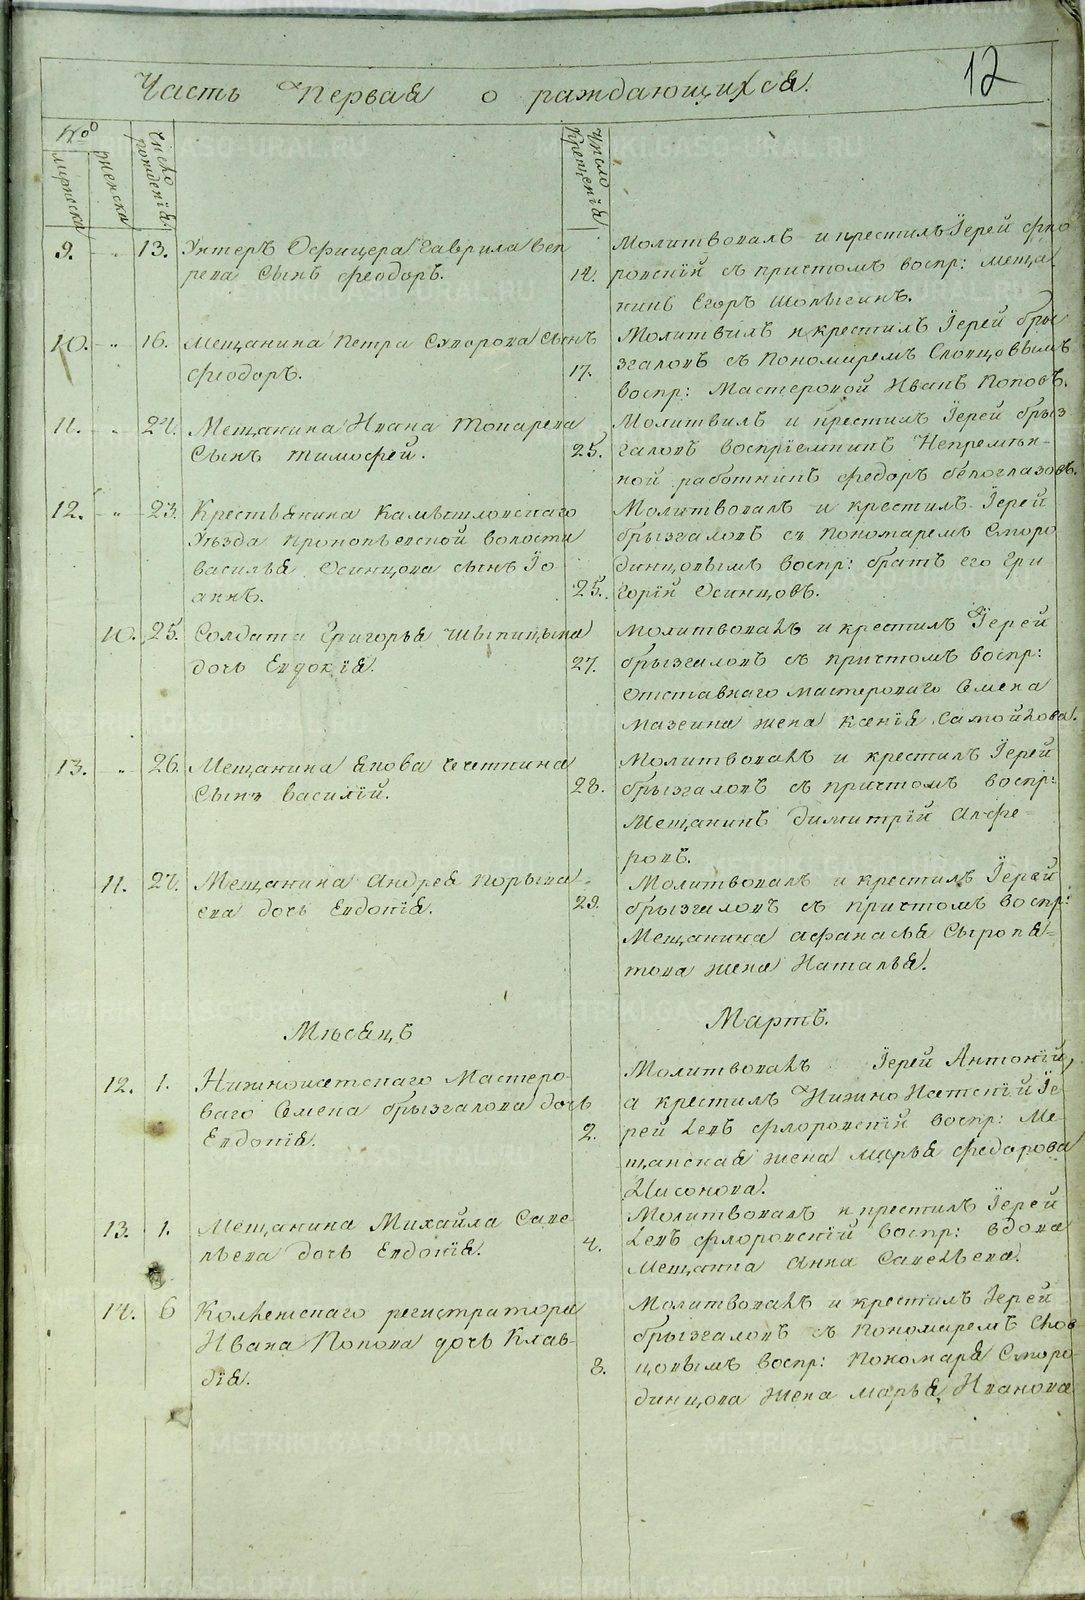 12
Часть Первая о раждающихся.
№
мужеска
женска
Число рождения.
Число Крещения
9. " 13. Унтеръ Офицера Гаврила Веп
рева Сынъ Феодоръ.
14.
Молитвовалъ и крестилъ Іерей Фло
ровскій съ причтомъ воспр: меща
нинъ Егоръ Шолыгинъ.
10. " 16. Мещанина Петра Суворова Сынъ
Феодоръ.
17.
Молитвилъ и крестилъ Іерей Бры
згаловъ съ Пономаремъ Словцовымъ
воспр: Мастеровой Иванъ Поповъ.
11. " 24. Мещанина Ивана Токарева
Сынъ Тимофей.
25.
Молитвилъ и крестилъ Іерей Брыз
галовъ воспріемникъ Непремѣн-
ной работникъ Федоръ Белоглазовъ.
12. " 23. Крестьянина Камышловскаго
Уѣзда Прокопьевской волости
Василья Осинцова сынъ Іо
аннъ.
25.
Молитвовалъ и крестилъ Іерей
Брызгаловъ съ Пономаремъ Сморо
динцовымъ воспр: братъ его Гри
горій Осинцовъ.
10. 25. Солдата Григорья Шыпицына
дочь Евдокія.
27.
Молитвовалъ и крестилъ Іерей
Брызгаловъ съ причтомъ воспр:
отставнаго мастероваго Семена
Мазеина жена Ксенія Самойлова.
13. " 26. Мещанина Якова Чечеткина
Сынъ Василій.
28.
Молитвовалъ и крестилъ Іерей
Брызгаловъ съ причтомъ воспр:
Мещанинъ Димитрій Алфе-
ровъ.
11. 27. Мещанина Андрея Порыва-
ева дочь Евдокія.
29.
Молитвовалъ и крестилъ Іерей
Брызгаловъ съ причтомъ воспр:
Мещанина Афанасья Сыропя-
това жена Наталья.
Мѣсяцъ Мартъ.
12. 1. Нижноисетскаго Мастеро-
ваго Семена Брызгалова дочь
Евдокія.
2.
Молитвовалъ Іерей Антоній,
а крестилъ Нижно Исетскій Іе
рей Левъ Флоровскій воспр: Ме-
щанская жена Марья Федорова
Чисонова.
13. 1. Мещанина Михайла Саве-
льева дочь Евдокія.
4.
Молитвовалъ и крестилъ Іерей
Левъ Флоровскій воспр: вдова
Мещанка Анна Савельева.
14. 6 Коллежскаго регистратора
Ивана Попова дочь Клав-
дія.
8.
Молитвовалъ и крестилъ Іерей
Брызгаловъ съ Пономаремъ Слов
цовымъ воспр: Пономаря Сморо-
динцова жена Марья Иванова
METRIKI.GASO-URAL.RU